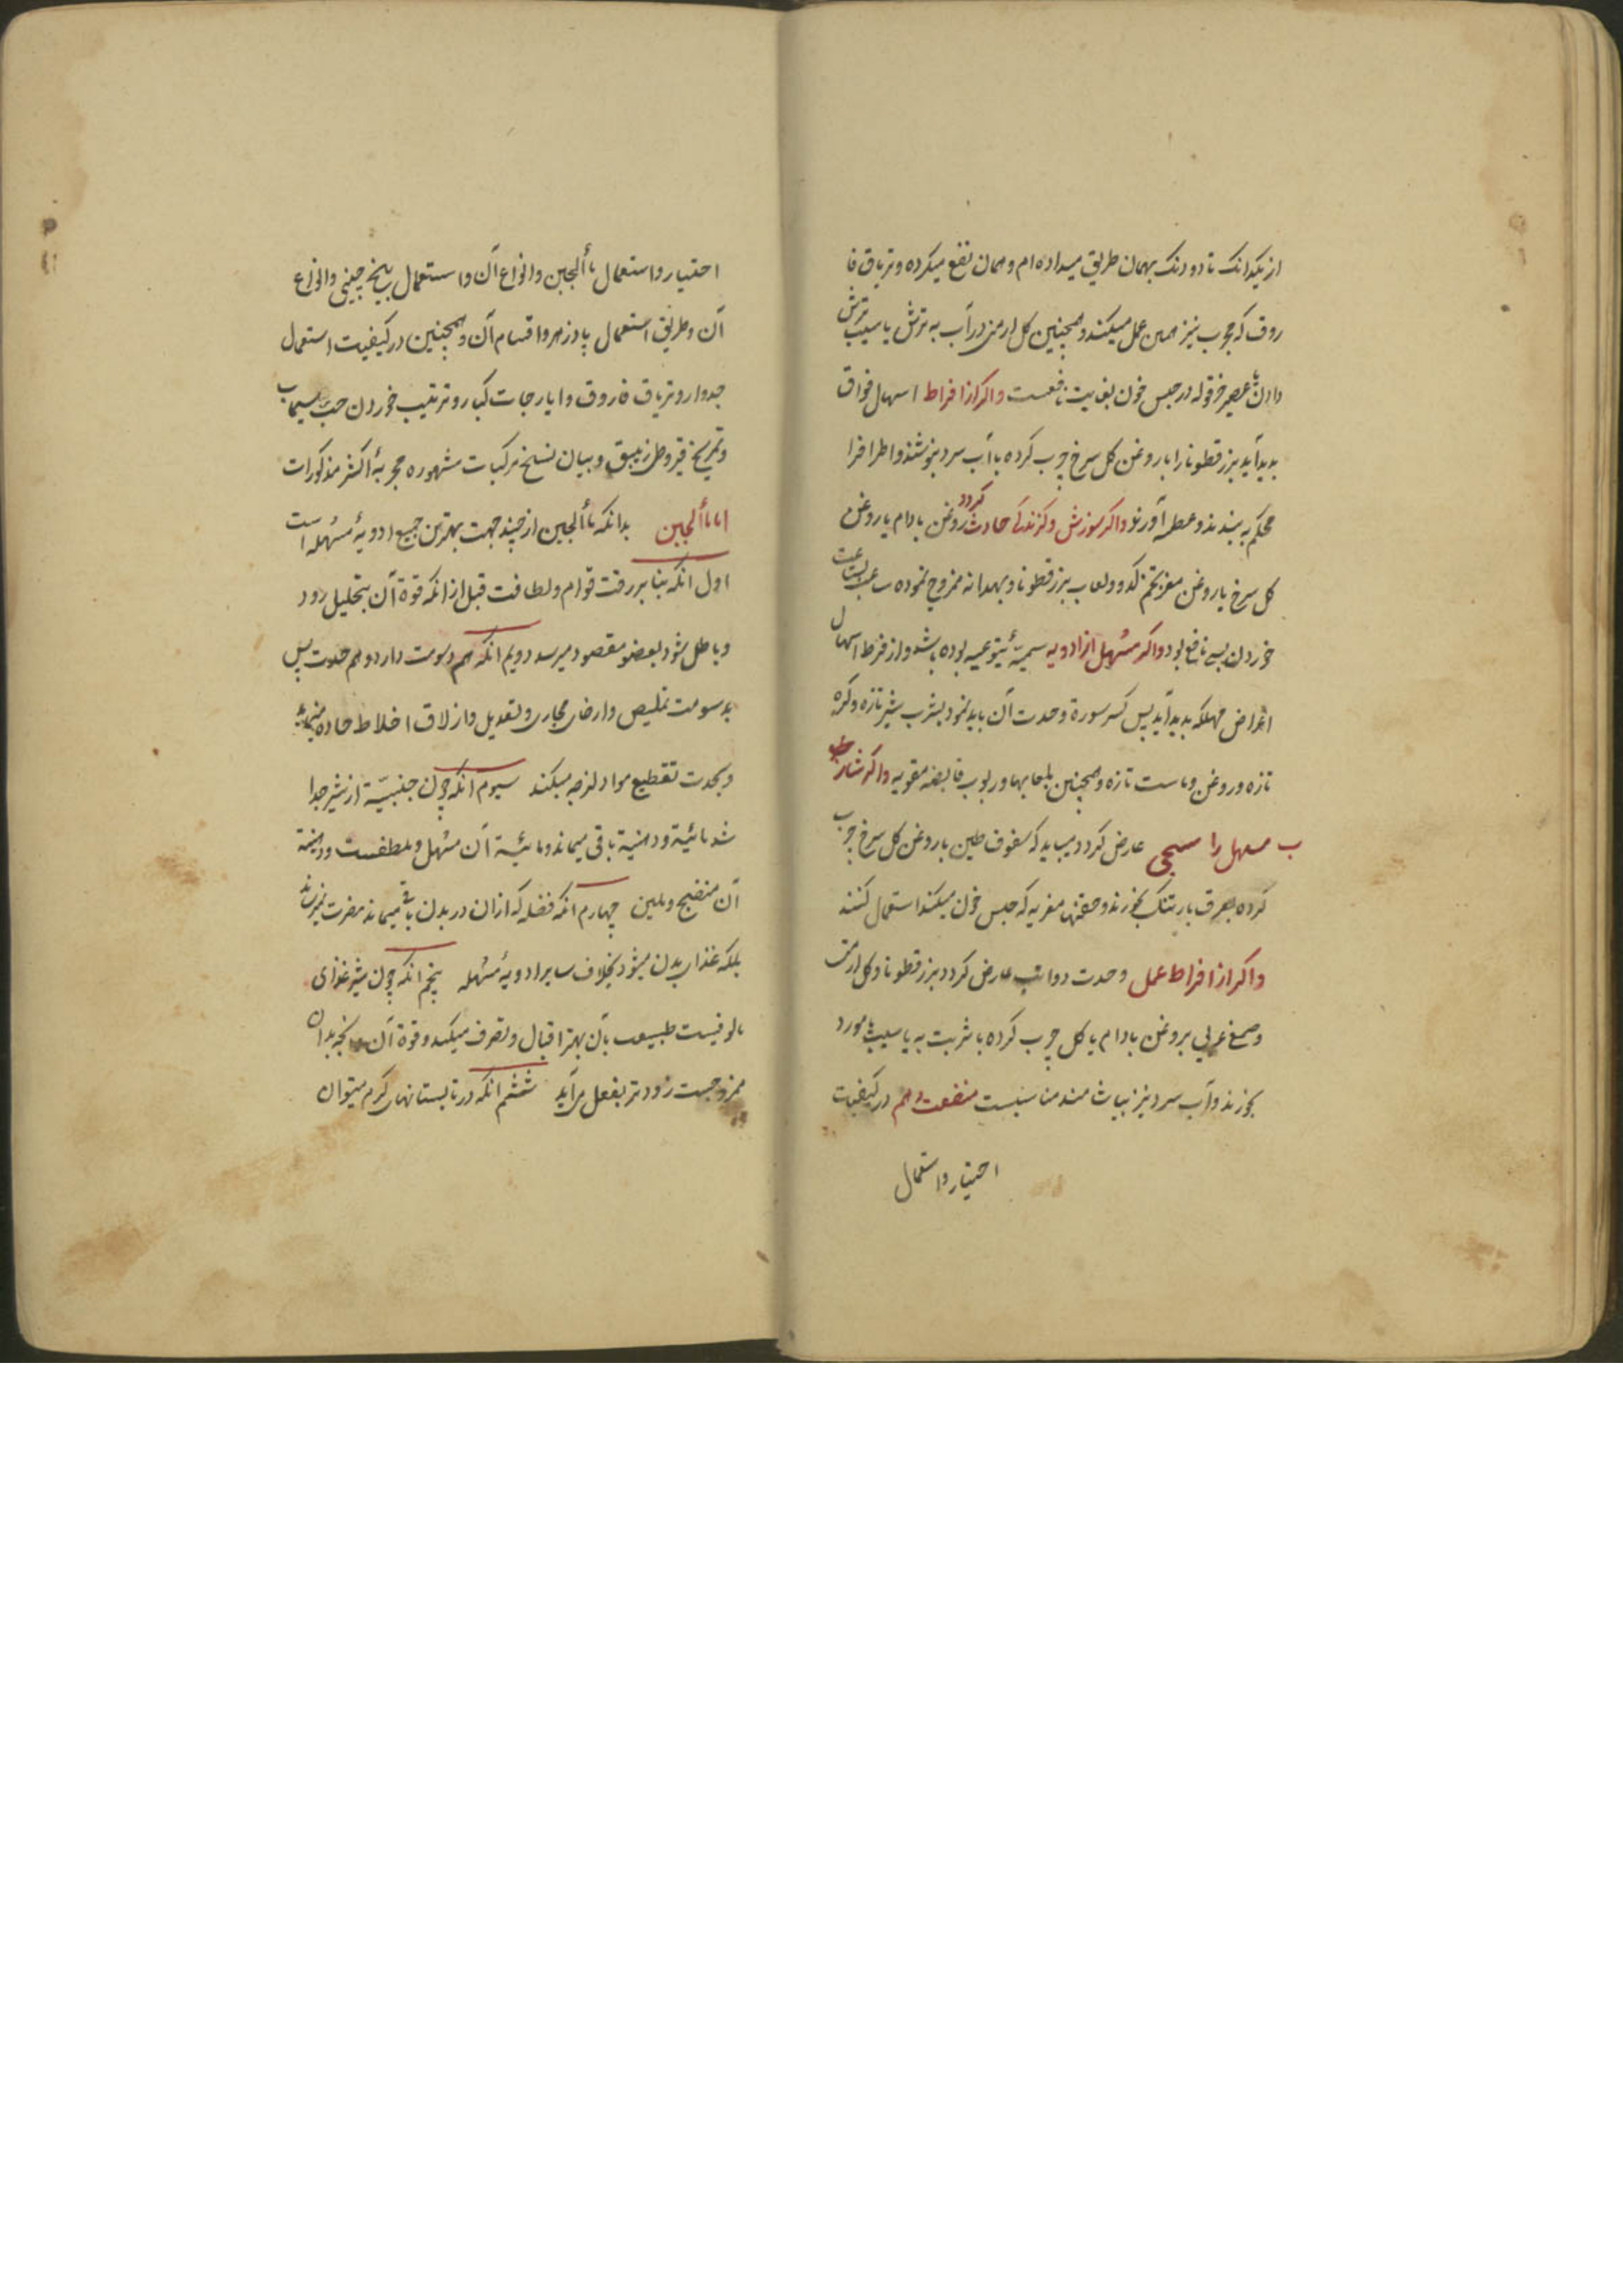 از یکدانک تا دو دنک بهمان طریق میداده‌ام و همان نفع میکرده و تریاق فا
روق که مجرب نیز همین عمل میکند و همچنین کل ارمنی در آب به ترش یا سیب ترش
دادن با عصیر خرفه در حبس خون بغایت نافعست واکر از افراط اسهال فواق
بدید آید بزرقطونا را با روغن کل سرخ چرب کرده با آب سرد بنوشند و اطرافرا
محکم به بندند و عطسه آورند واکر سوزش و کزندکی حادث کردد روغن بادام یا روغن
کل سرخ یا روغن مغز تخم کدو و لعاب بزرقطونا و بهدانه ممزوج نموده ساعت بساعت
خوردن بسی نافع بود واکر مسهل از ادویه سمیّهٔ یتوعیه بوده باشد و از فرط اسهال
اعراض مهلکه بدید آید پس کسر سورة و حدت آن باید نمود بشرب شیر تازه و کره
تازه و روغن و ماست تازه و همچنین بلعابها و ربوب قابضه مقویه واکر شار
ب مسهل را سحجی عارض کردد میباید که سفوف طین با روغن کل سرخ چرب
کرده بعرق بارتنک بخورند و حقنهای مغریه که حبس خون میکند استعمال کنند
واکر از افراط عمل و حدت دوا تب عارض کردد بزرقطونا و کل ارمنی
و صمغ عربی بروغن بادام یا کل چرب کرده با شربت به یا سیب یا مورد
بخورند و آب سرد نیز بیاشامند مناسبست منفعت دهم در کیفیت
احتیار و استعمال
احتیار و استعمال ماألجبن و انواع آن و استعمال بیخ چینی و انواع
آن و طریق استعمال پادزهر و اقسام آن و همچنین در کیفیت استعمال
جدوار و تریاق فاروق و ایارجات کبار و ترتیب خوردن حبّ سیماب
و تمریخ قیروطی زیبق و بیان نسخ مرکبات مشهوره مجربهٔ اکثر مذکورات
اما ماألجبن بدانکه ماألجبن از چند جهت بهترین جمیع ادویهٔ مسهله است
اول انکه بنا بر رقت قوام و لطافت قبل از انکه قوة آن بتحلیل رود
و باطل شود بعضو مقصود میرسد دویم انکه هم دسومت دارد و هم حدت پس
بدسومت تملیص و ارخای مجاری و تعدیل و ازلاق اخلاط حاده مینماید
و بحدت تقطیع مواد لزجه میکند سیوم انکه چون جنبیّة از شیر جدا
شد مائیّة و دهنیة باقی میماند و مائیّة آن مسهل و ملطفست و دهنیّة
آن منضج و ملین چهارم انکه فضله که ازان در بدن باقی میماند مضرت نمیرساند
بلکه غذای بدن میشود بخلاف سایر ادویهٔ مسهله پنجم انکه چون شیر غذای
مالوفیست طبیعت بآن بهتر اقبال و تصرف میکند و قوة آن و انچه بدان
ممزوجست زودتر بفعل می‌آید ششم انکه در تابستانهای کرم میتوان